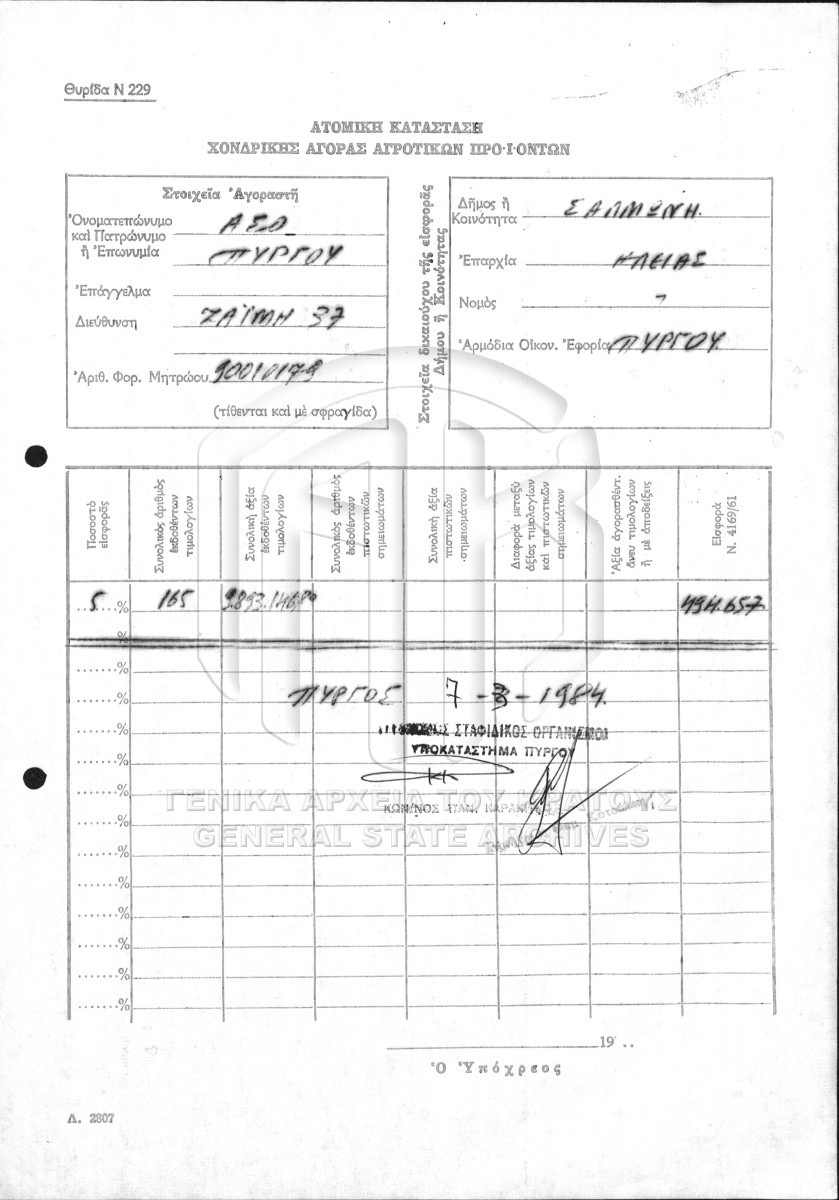 Θυρίδα Ν 229
ΑΤΟΜΙΚΗ ΚΑΤΑΣΤΑΣΗ
ΧΟΝΔΡΙΚΗΣ ΑΓΟΡΑΣ ΑΓΡΟΤΙΚΩΝ ΠΡΟ·Ι·ΟΝΤΩΝ
Στοιχεῖα Ἀγοραστῆ
Ὀνοματεπώνυμο
καὶ Πατρώνυμο
ἢ Ἐπωνυμία
ΑΣΟ
ΠΥΡΓΟΥ
Ἐπάγγελμα
Διεύθυνση ΖΑΪΜΗ 37
Ἀριθ. Φορ. Μητρώου 90010179
(τίθενται καὶ μὲ σφραγίδα)
Στοιχεῖα δικαιούχου τῆς εἰσφορᾶς
Δήμου ἢ Κοινότητας
Δῆμος ἢ
Κοινότητα ΣΑΛΜΩΝΗ.
Ἐπαρχία ΗΛΕΙΑΣ
Νομὸς
Ἁρμόδια Οἰκον. Ἐφορία ΠΥΡΓΟΥ.
Ποσοστὸ
εἰσφορᾶς
Συνολικὸς ἀριθμὸς
ἐκδοθέντων
τιμολογίων
Συνολικὴ ἀξία
ἐκδοθέντων
τιμολογίων
Συνολικὸς ἀριθμὸς
ἐκδοθέντων
πιστωτικῶν
σημειωμάτων
Συνολικὴ ἀξία
πιστωτικῶν
σημειωμάτων
Διαφορὰ μεταξὺ
ἀξίας τιμολογίων
καὶ πιστωτικῶν
σημειωμάτων
Ἀξία ἀγορασθέντ.
ἄνευ τιμολογίων
ἢ μὲ ἀποδείξεις
Εἰσφορὰ
Ν. 4169/61
..5...% 165 9.893.146,80 494.657
%
.......%
.......% ΠΥΡΓΟΣ 7-3-1984.
.......% ΣΤΑΦΙΔΙΚΟΣ ΟΡΓΑΝΙΣΜΟΣ
ΥΠΟΚΑΤΑΣΤΗΜΑ ΠΥΡΓΟΥ
.......%
.......%
ΚΩΝ/ΝΟΣ
ΓΕΝΙΚΑ ΑΡΧΕΙΑ ΤΟΥ ΚΡΑΤΟΥΣ
GENERAL STATE ARCHIVES
.......%
.......%
.......%
.......%
.......%
.......%
.......%
19 ..
Ὁ Ὑπόχρεος
Δ. 2807